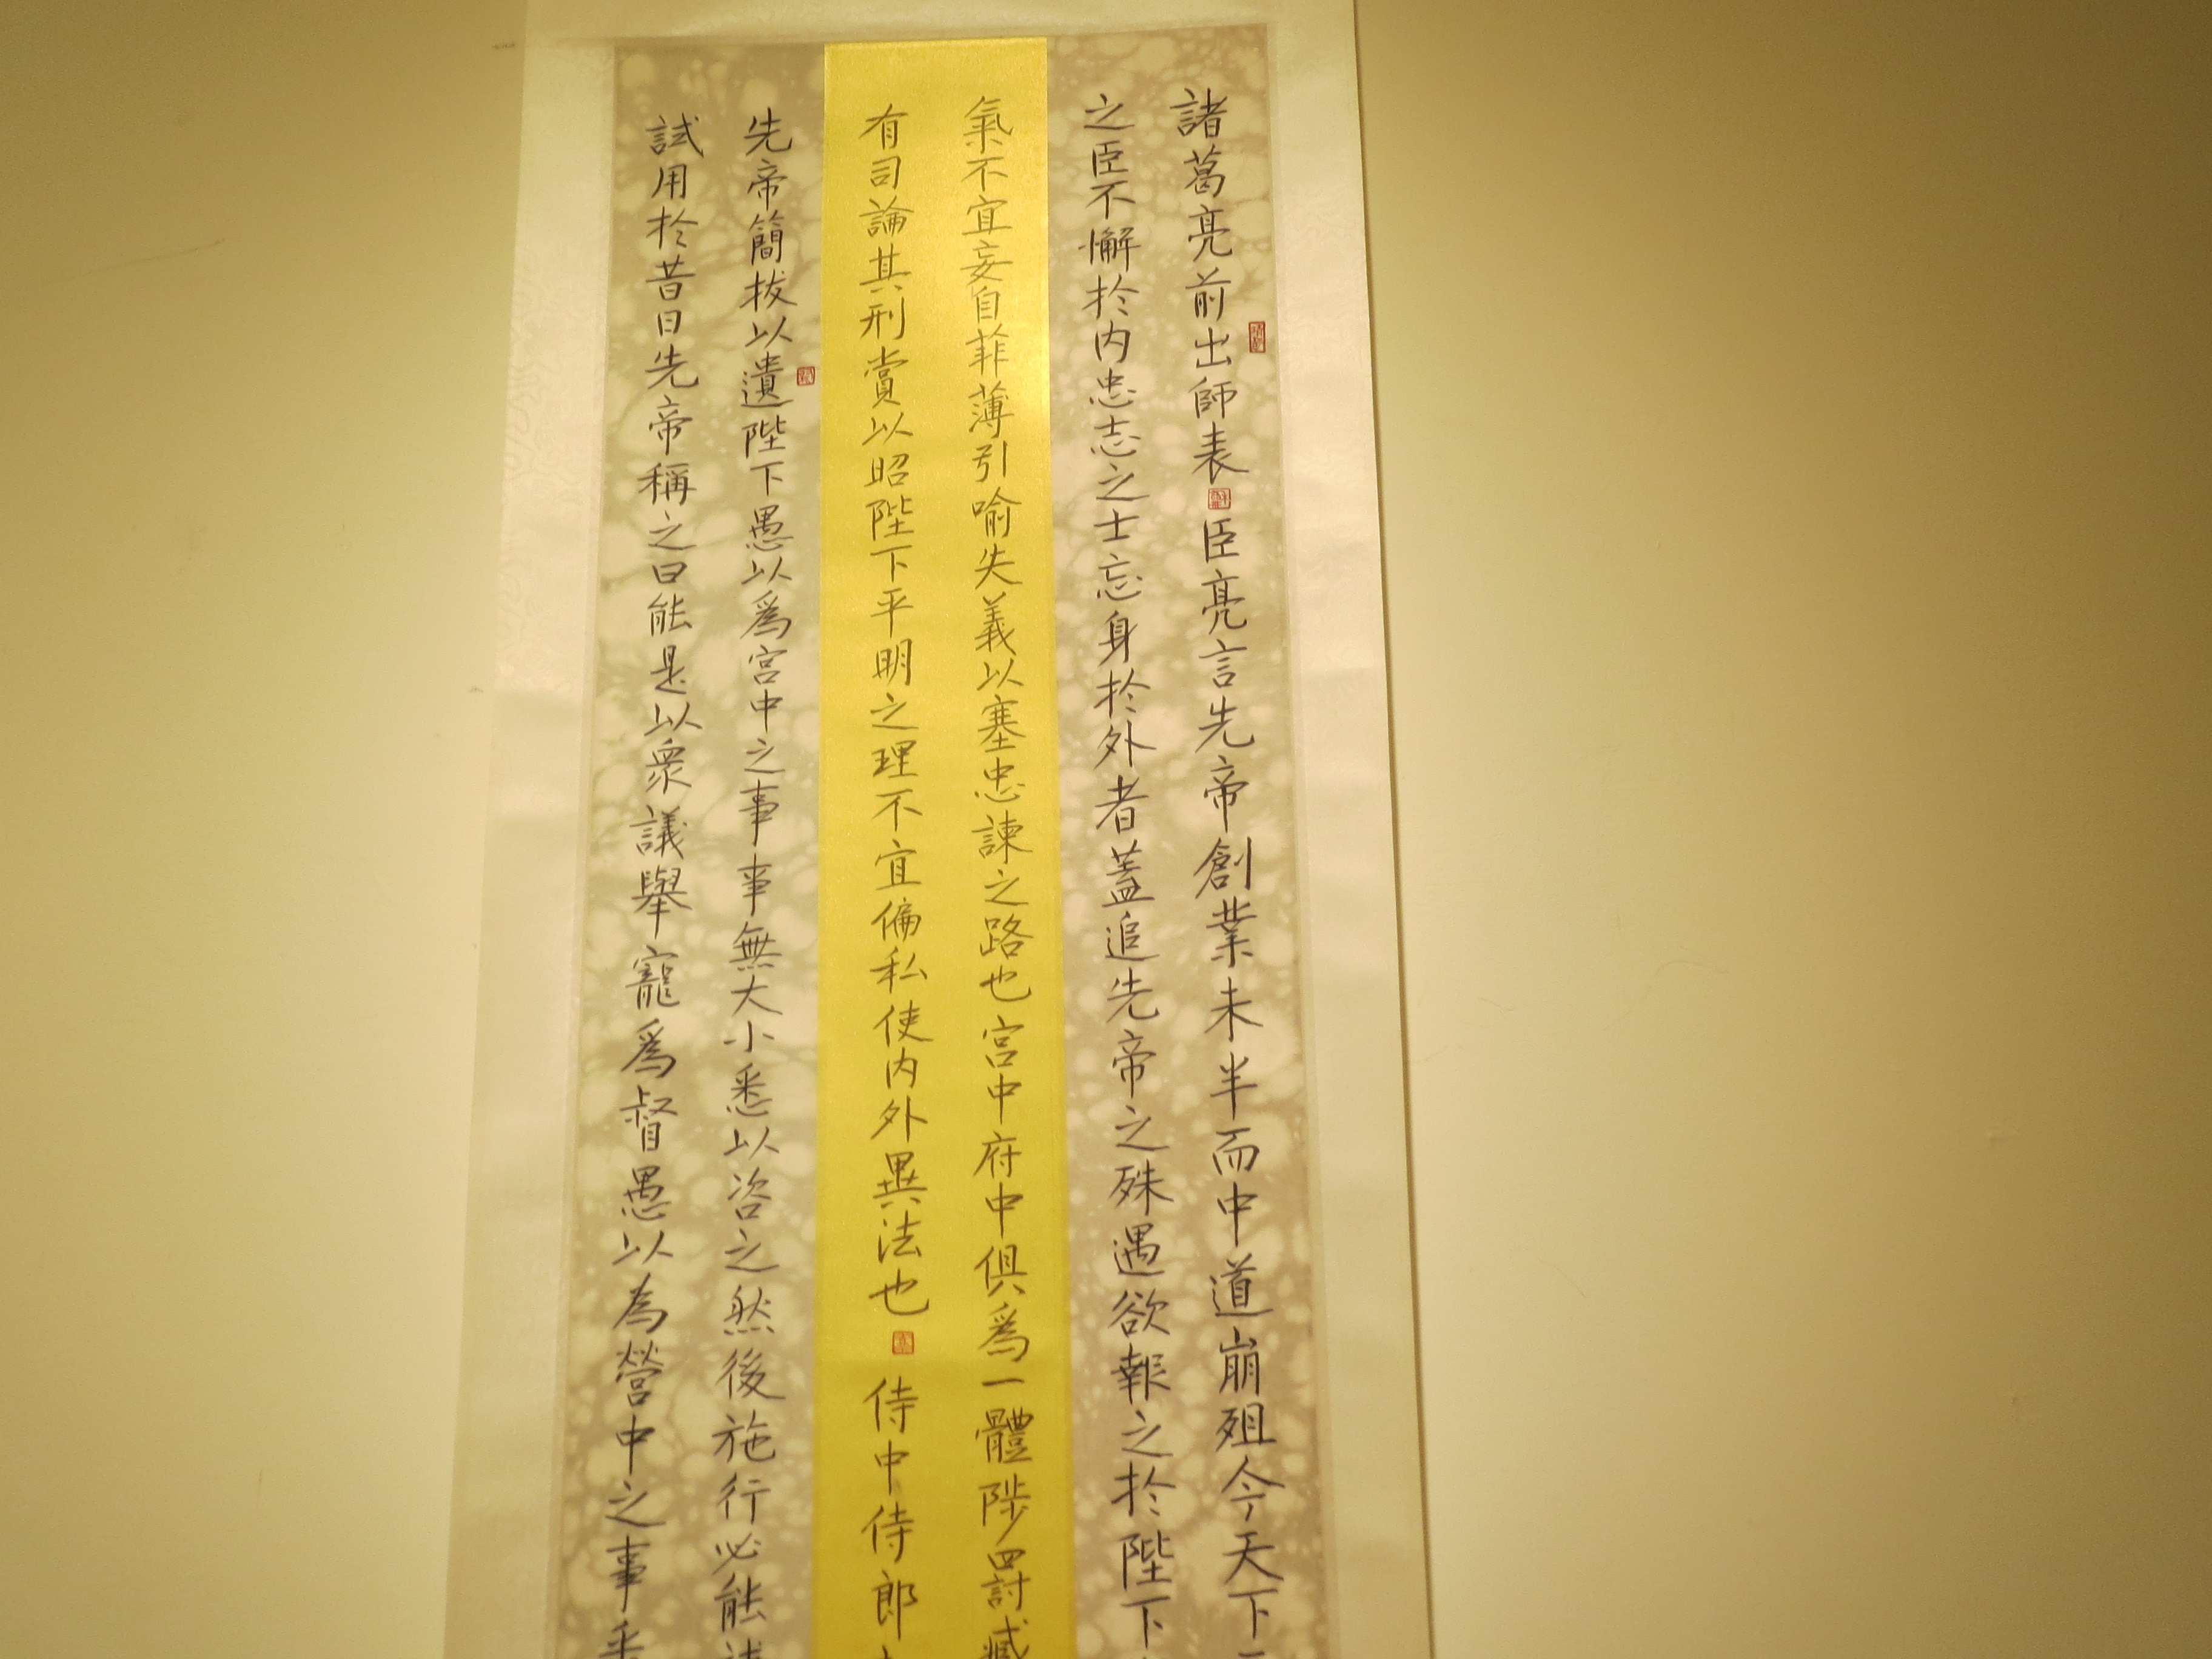 諸葛亮前出師表臣亮言先帝創業未半而中道崩殂今天下
之臣不懈於内忠志之士忘身於外者蓋追先帝之殊遇欲報之於陛下
氣不宜妄自菲薄引喻失義以塞忠諫之路也宮中府中俱爲一體陟罰臧
有司論其刑賞以昭陛下平明之理不宜偏私使内外異法也侍中侍郎
先帝簡拔以遺陛下愚以爲宮中之事事無大小悉以咨之然後施行必能
試用於昔日先帝稱之曰能是以衆議舉寵爲督愚以為營中之事